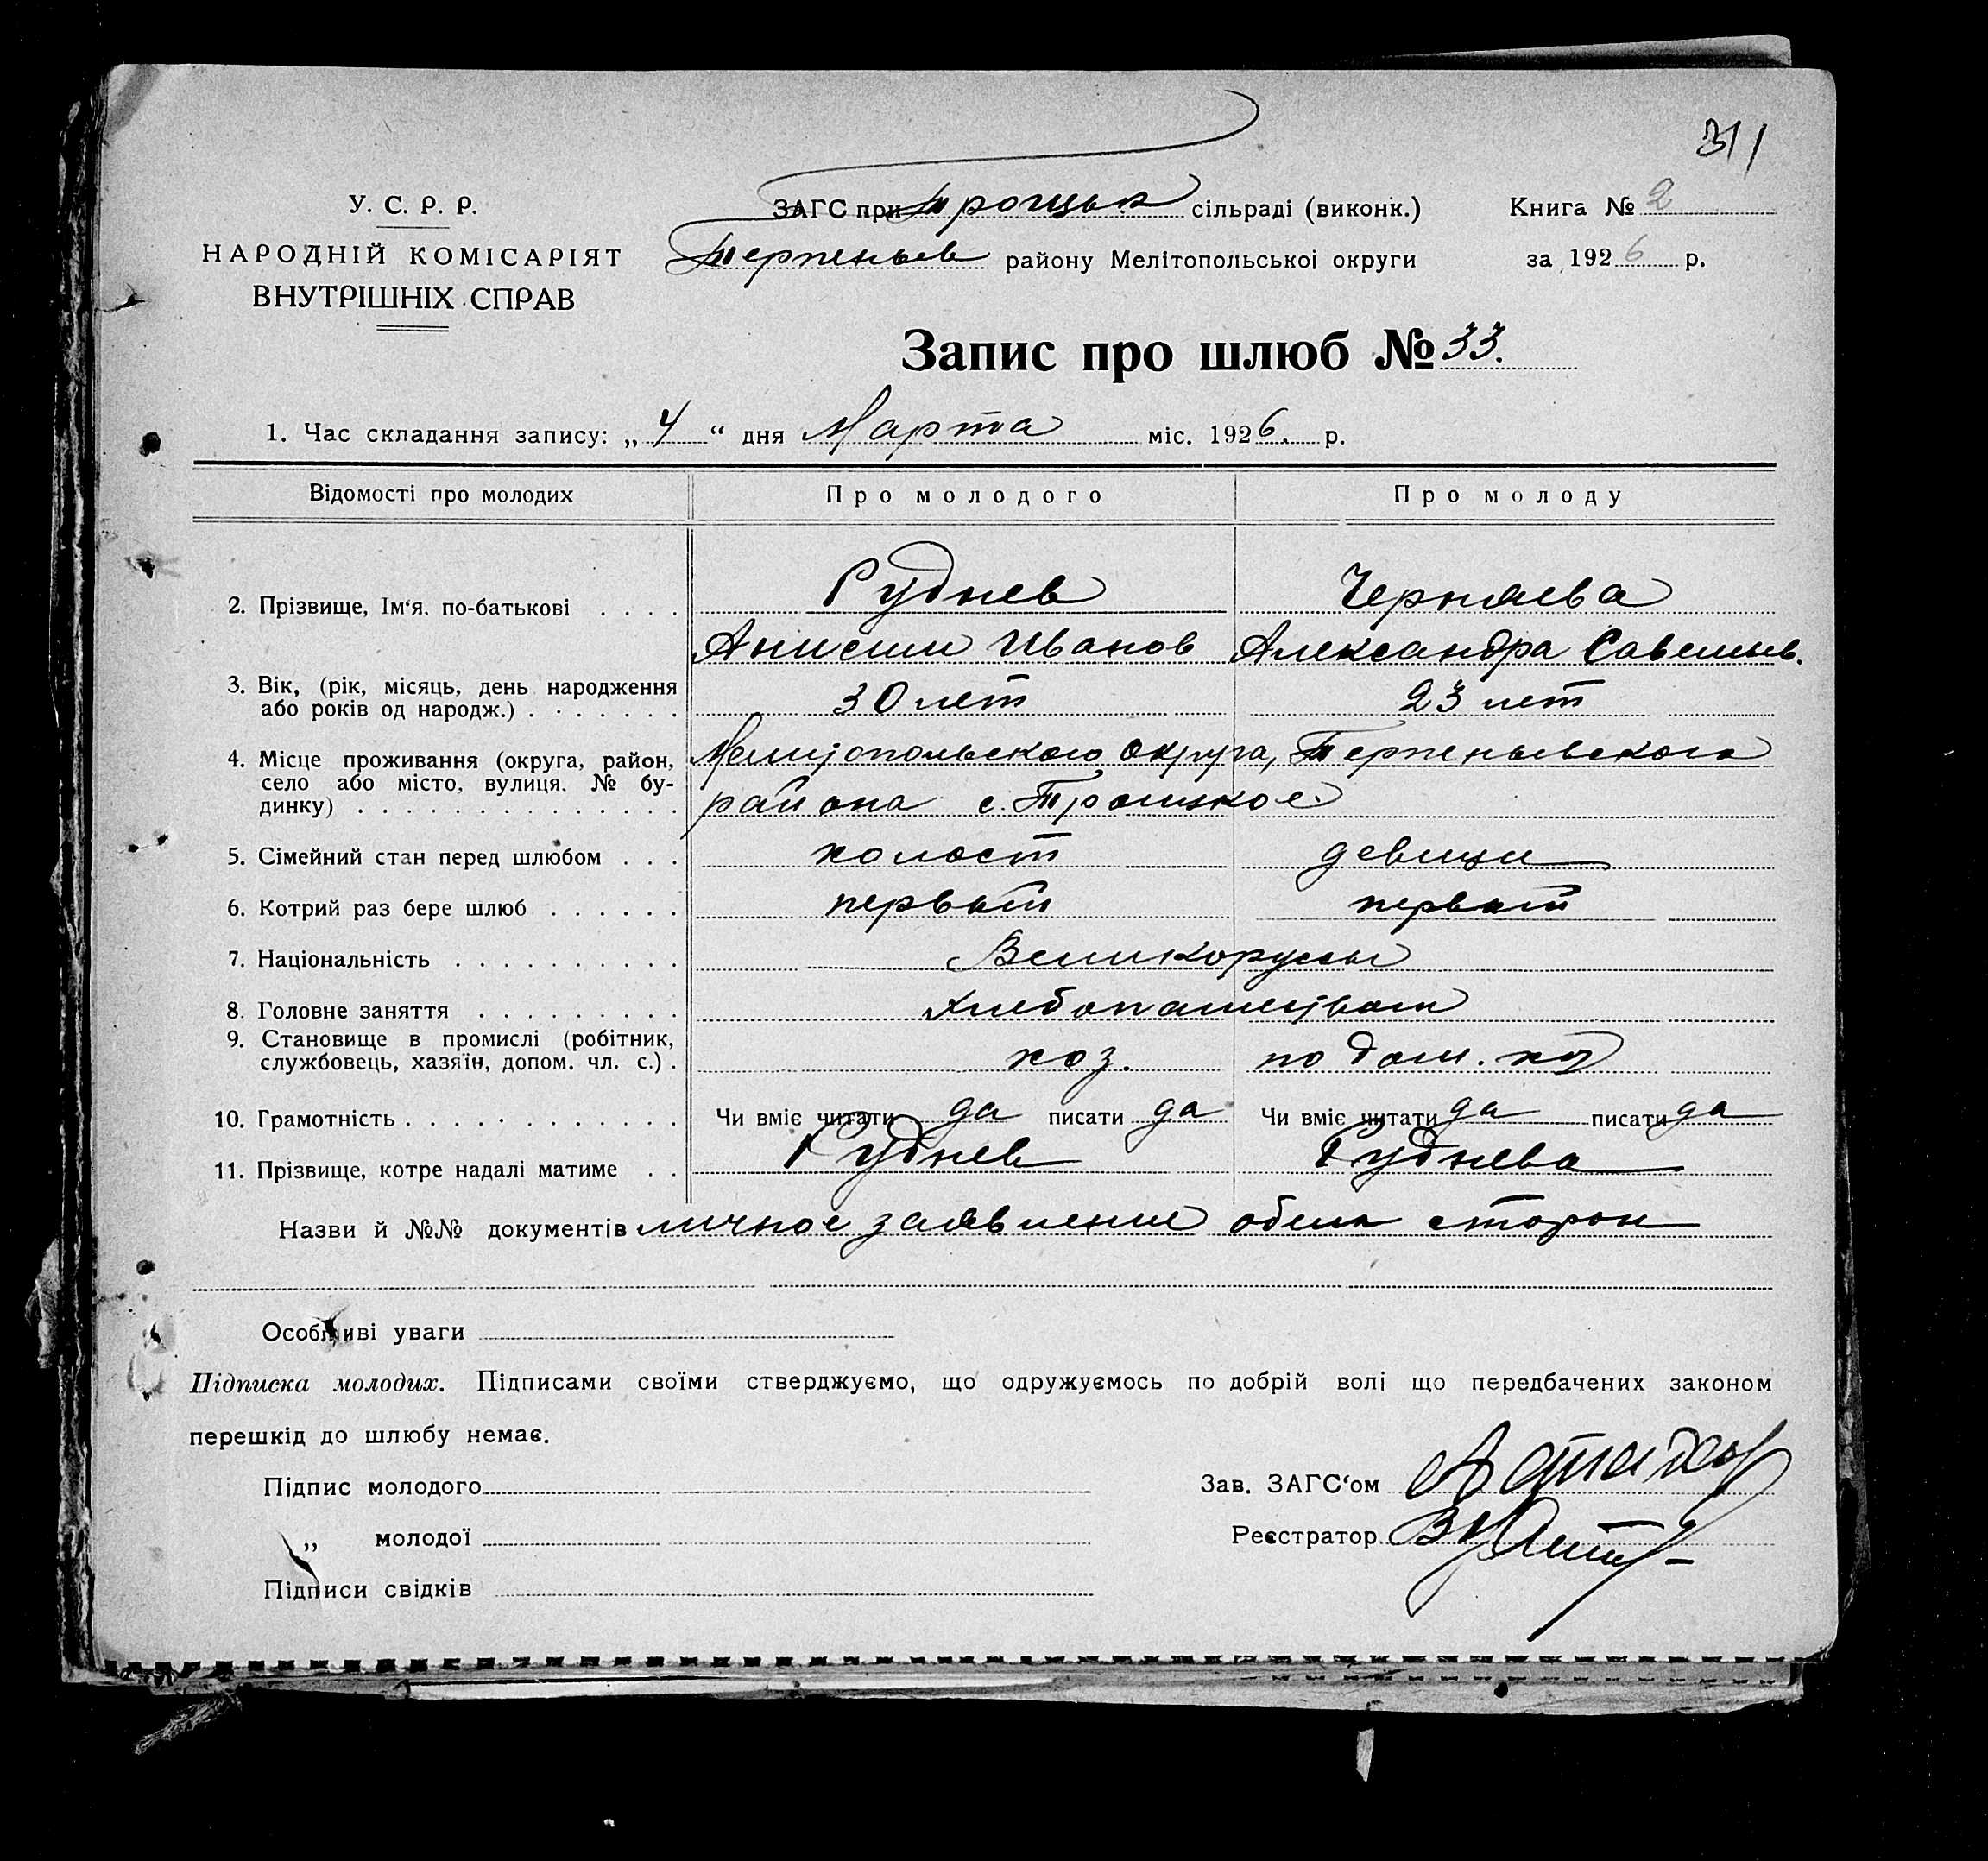 311
У. С. Р. Р.
НАРОДНІЙ КОМІСАРІЯТ
ВНУТРІШНІХ СПРАВ
ЗАГС при Троицьк сільраді (виконк.)
Терпеньев району Мелітопольської округи
Книга № 2
за 1926 р.
Запис про шлюб № 33.
1. Час складання запису: „ 4 “ дня Марта міс. 1926. р.
Відомості про молодих Про молодого Про молоду
2. Прізвище, Ім‘я. по-батькові . . . . Руднев Черняева
Анисим Иванов Александра Савельев.
3. Вік, (рік, місяць, день народження
або років од народж.) . . . . . . . 30 лет 23 лет
4. Місце проживання (округа, район,
село або місто, вулиця. № бу-
динку) . . . . . . . . . . . . . . .
Мелитопольского округа, Терпеньевского
района с. Троицкое
5. Сімейний стан перед шлюбом . . . холост девица
6. Котрий раз бере шлюб . . . . . . первый первый
7. Національність . . . . . . . . . . Великоруссы
8. Головне заняття . . . . . . . . . Хлебопашеством
9. Становище в промислі (робітник,
службовець, хазяїн, допом. чл. с.) . хоз. по дом. хоз
10. Грамотність . . . . . . . . . . . . Чи вміє читати да писати да Чи вміє читати да писати да
11. Прізвище, котре надалі матиме . . Руднев Руднева
Назви й №№ документів личное заявление обеих сторон
Особливі уваги
Підписка молодих. Підписами своїми стверджуємо, що одружуємось по добрій волі що передбачених законом
перешкід до шлюбу немає.
Підпис молодого
„ молодої
Підписи свідків
Зав. ЗАГС‘ом
Реєстратор